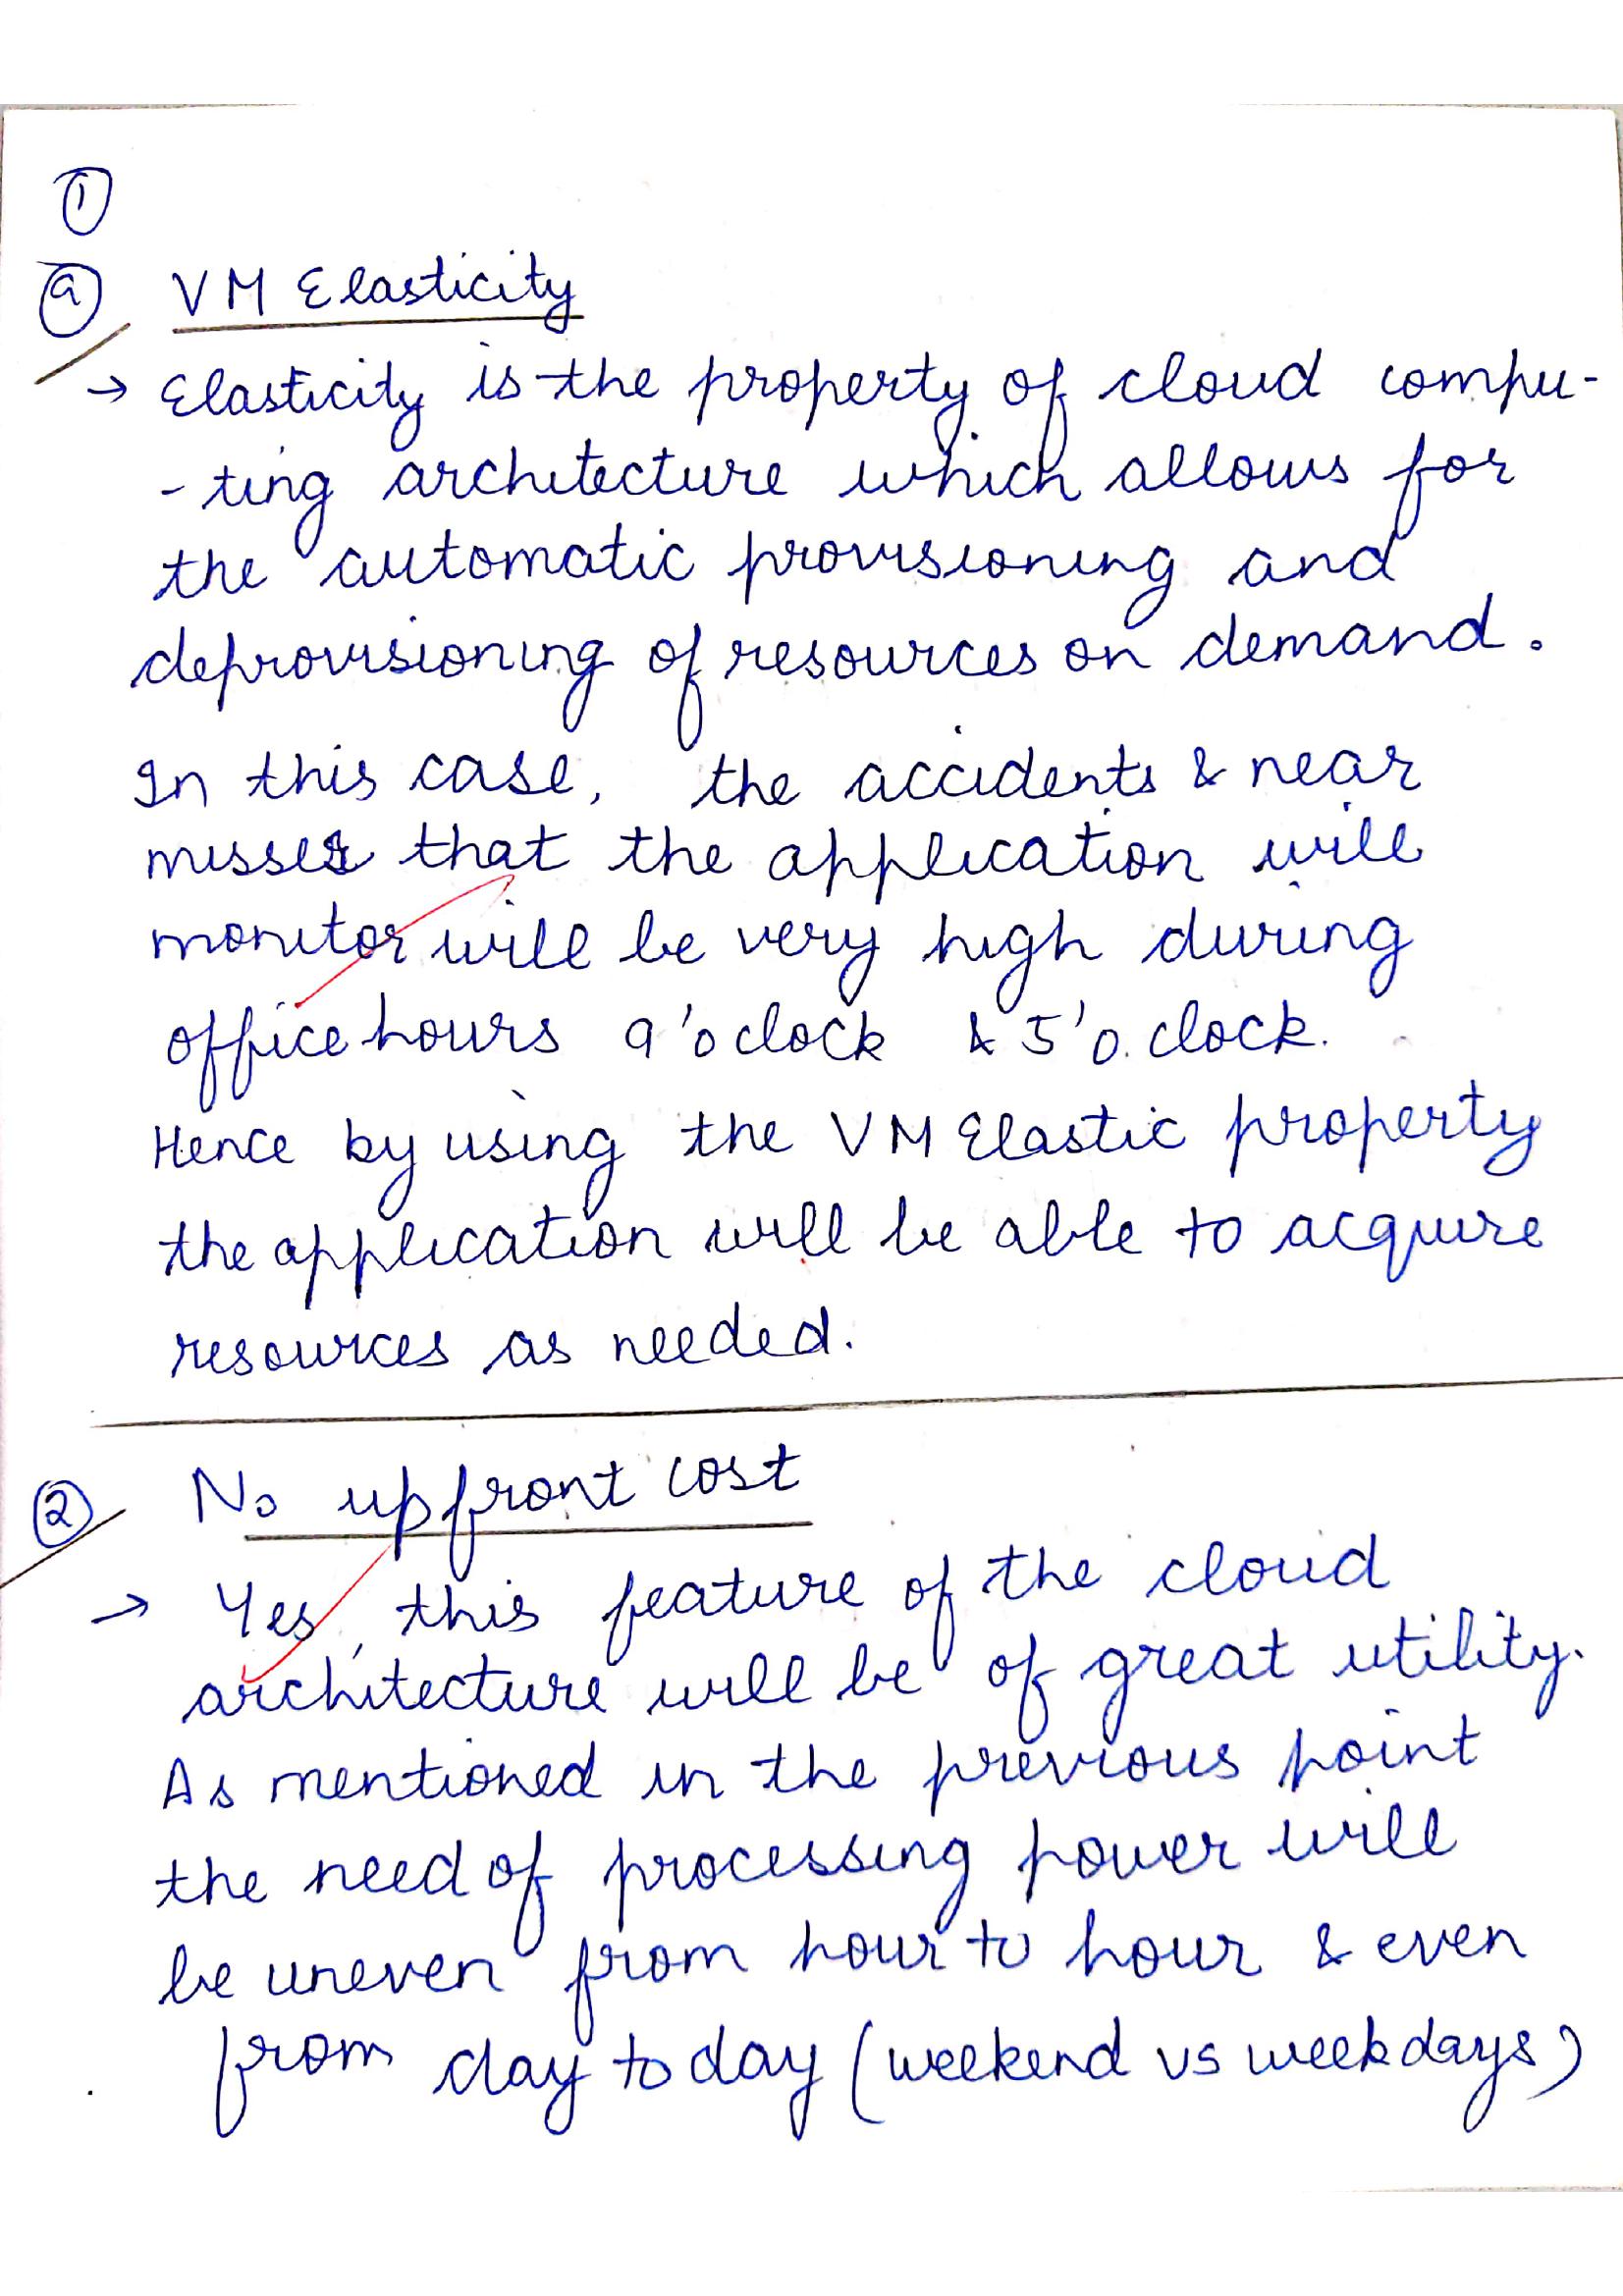 1
a VM Elasticity
→ Elasticity is the property of cloud compu-
- ting architecture which allows for
the automatic provisioning and
deprovisioning of resources on demand.
In this case, the accidents & near
misses that the application will
monitor will be very high during
office hours 9'o clock & 5'o. clock.
Hence by using the VM Elastic property
the application will be able to acquire
resources as needed.
2 No upfront cost
→ Yes, this feature of the cloud
architecture will be of great utility.
As mentioned in the previous point
the need of processing power will
be uneven from hour to hour & even
from day to day (weekend vs weekdays)